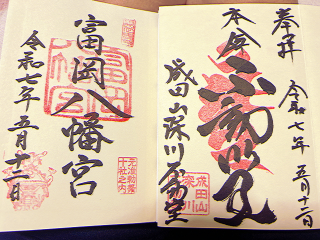 奉拝
令和七年五月十二日
本尊
不動明王
成田山深川不動堂
成田山
深川
富岡八幡宮
令和七年五月十二日
元准勅祭
十社之内